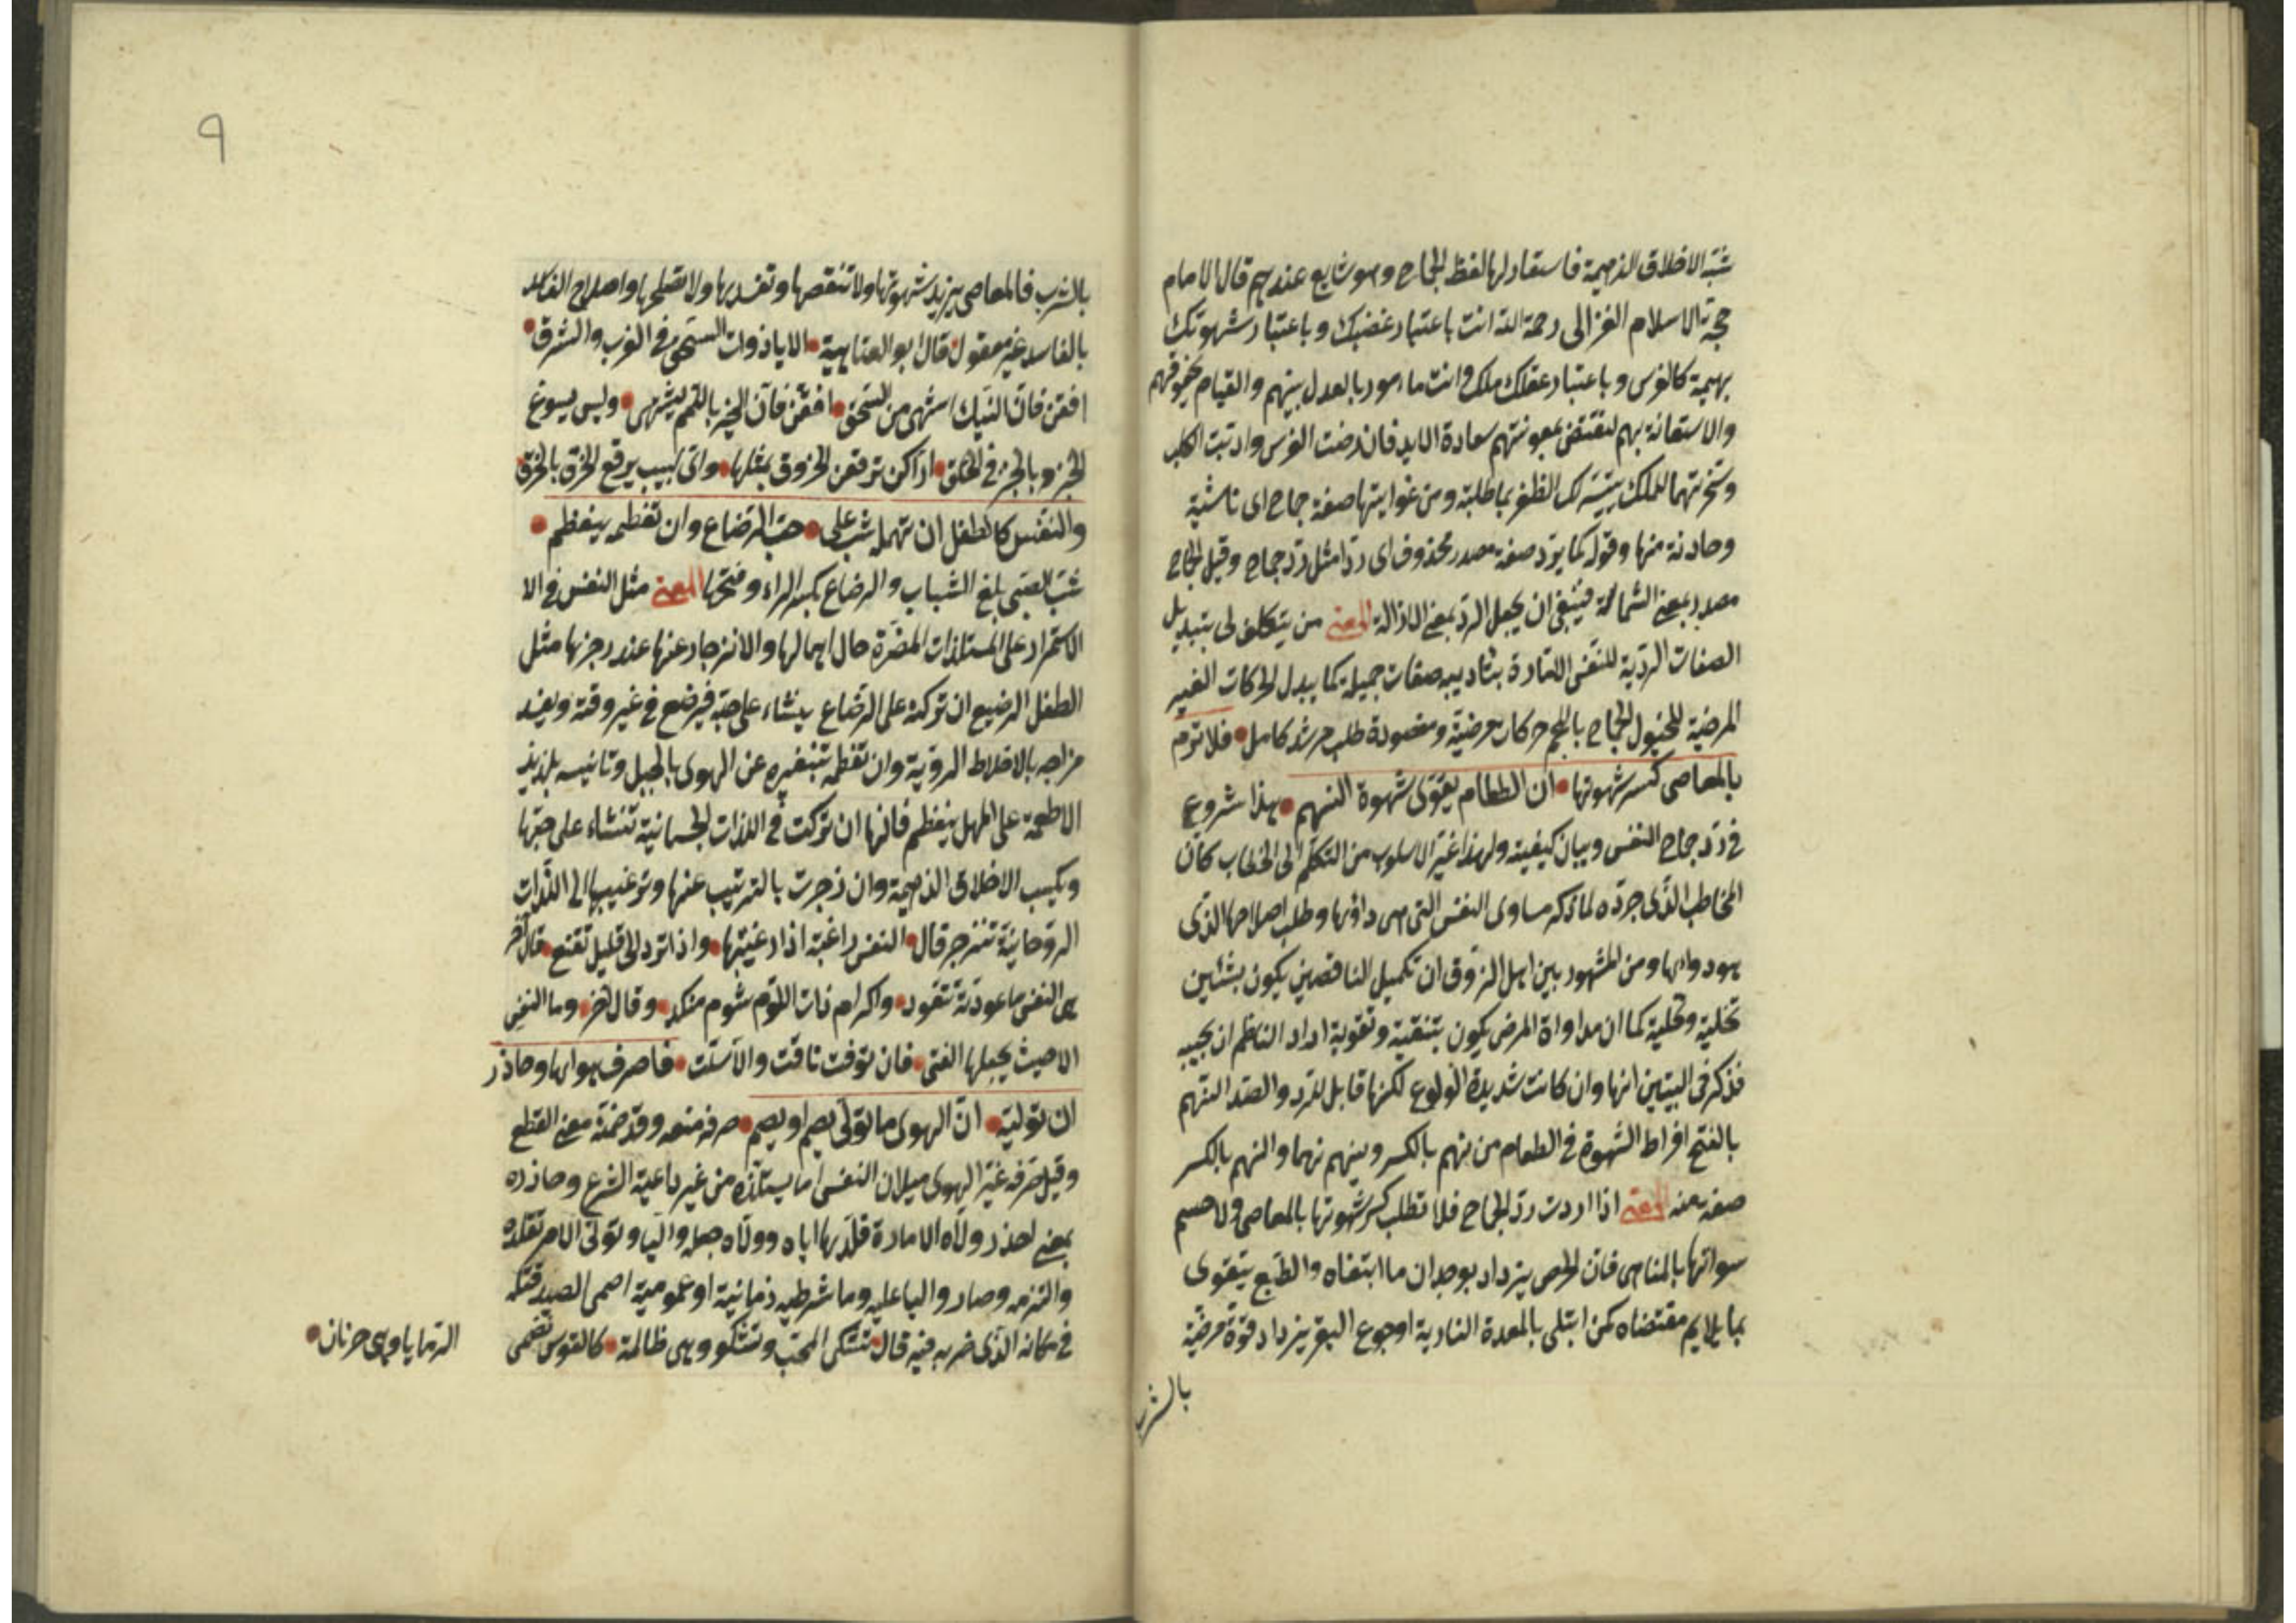 شبّه الاخلاق الذميمة فاستعار لها لفظ الجماح وهو شايع عندهم قال الامام
حجة الاسلام الغزالى رحمة الله انت باعتبار غضبك وباعتبار شهوتك
بهيمة كالفرس وباعتبار عقلك ملك وانت مامور بالعدل بينهم والقيام بحقوقهم
والاستعانة بهم لتقتنص بمعونتهم سعادة الابد فان رضت الفرس وادبت الكلب
وسخرتهما للملك يتيسر لك الظفر بما طلبته ومن غوايتها صفة جماح اى ناشئة
وحادثة منها وقوله كما يردّ صفة مصدر محذوف اى ردّا مثل ردّ جماح وقيل الجماح
مصدر بمعنى فينبغى ان يجعل الردّ بمعنى الازالة المعنى من يتكلف لى بتبديل
الصفات الرديّة للنفس الامارة بتاديبه صفات جميلة كما يبدل الحركات الغير
المرضية للخيول الجماح باللجم حركات مرضيّة ومقصوده طلب مرشد كامل فلا ترم
بالمعاصى كسر شهوتها ان الطعام يقوّى شهوة النهم هذا شروع
فى ردّ جماح النفس وبيان كيفيته ولهذا غيّر الاسلوب من التكلّم الى الخطاب كأن
المخاطب الذّى جرّده لما ذكر مساوى النفس التى هى داؤها وطلب اصلاحها الذى
هو دواها ومن المشهور بين اهل الذوق ان تكميل الناقصين يكون بشئين
تخلية وتحلية كما ان مداواة المرض يكون بتنقية وتقوية اراد الناظم ان يجيبه
فذكر فى البيتين انها وان كانت شديدة الولوع لكنها قابل للردّ والصدّ النهم
بالفتح افراط الشهوة فى الطعام من نهم بالكسر وينهم نهما والنهم بالكسر
صفة منه المعنى اذا اردت ردّ الجماح فلا تطلب كسر شهوتها بالمعاصى ولا حسم
بالمناهى فان الحرص يزداد بوجدان ما ابتغاه والطبع يتقوى
بما يلايم مقتضاه كمن ابتلى بالمعدة النارية او جوع البقر يزداد قوة مرضيّة
بالشرب
٩
بالشرب فالمعاصى يزيد شهوتها ولا تنقصها وتفسدها ولا تصلحها واصلاح الفاسد
بالفاسد غير معقول قال ابو العتاهية الا يا ذوات السحق فى الغرب والشرق
افقن فان النيك اشهى من السحق افقن فان الخبز باللحم يشتهى وليس يسوغ
الخبز بالخبز فى الحلق اراكن ترقعن الخروق بمثلها واى لبيب يرقع الخرق بالخرق
والنفس كالطفل ان تهمله شب على حبّ الرضاع وان تفطمه ينفطم
شبّ الصبى بلغ الشباب والرضاع بكسر الراء وفتحها المعنى مثل النفس فى الا
الاستمرار على المستلذات المضرّة حال اهمالها والانزجار عنها عند زجرها مثل
الطفل الرضيع ان تركته على الرضاع ينشاء على حبّه فيرضع فى غير وقته ويفسد
مزاجه بالاخلاط الرديّة وان تفطمه بتنفيره عن الهوى بالحيل وتانيسه بلذيذ
الاطعمة على المهل ينفطم فانها ان تركت فى اللذات الجسمانية تنشاء على حبّها
ويكسب الاخلاق الذميمة وان زجرت بالترتيب عنها وترغيبها الى اللذّات
الروحانيّة تنزجر قال النفس راغبة اذا رغبتها واذا ترد الى قليل تقنع قال آخر
هى النفس ما عودته تتعود واكرام ذات اللؤم شوم منكد وقال آخر وما النفس
الا حيث يجعلها الفتى فان توقت تاقت والا تسلّت فاصرف هواها وحاذر
ان توليه انّ الهوى ما تولّى يصم او يصم صرفه منعه وقد ضمّنه معنى القطع
وقيل صرفه غيّر الهوى ميلان النفس الى ما يستلذه من غير داعية الشرع وحاذره
بمعنى احذر ولّاه الامارة قلّدها اياه وولّاه جعله واليا وتولّى الامر تقلده
والتزمه وصار واليا عليه وما شرطيه زمانية او عمومية اصمى الصيد قتله
فى مكانه الذّى ضربه فيه قال تشكى المحبّ وتشكو وهى ظالمة كالقوس تصمى
الرمايا وهى مرنان